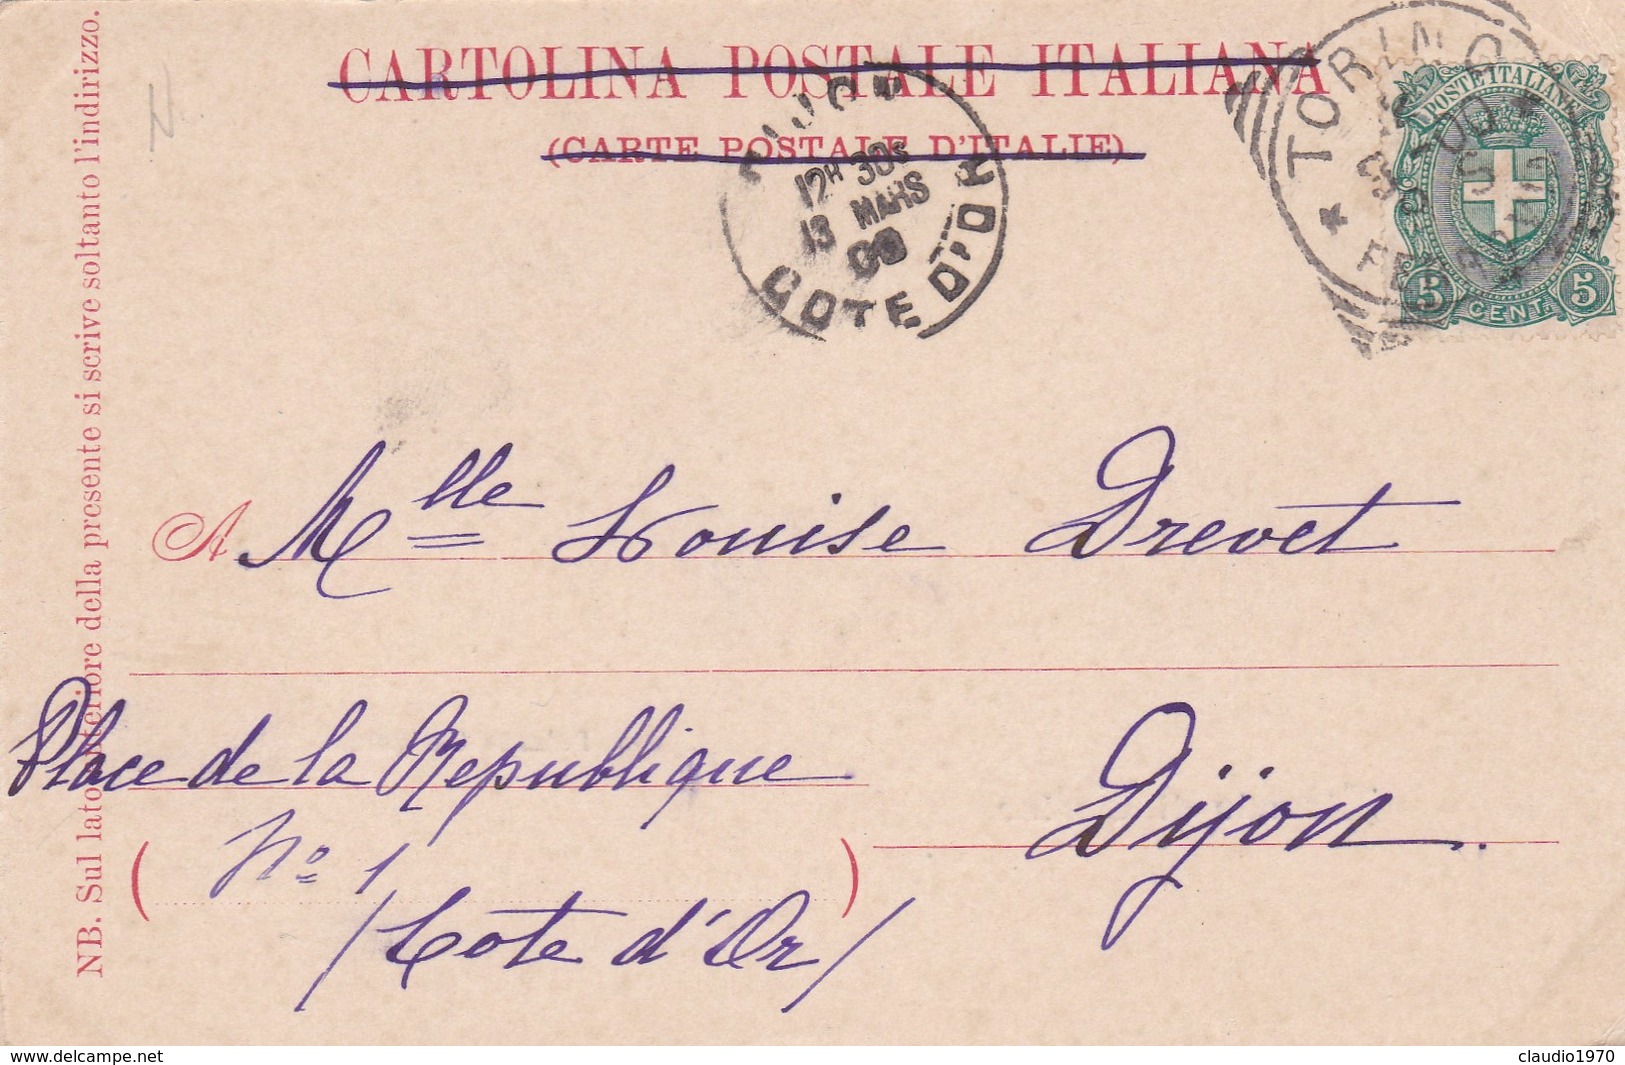 CARTOLINA POSTALE ITALIANA
(CARTE POSTALE D'ITALIE)
NB. Sul lato anteriore della presente si scrive soltanto l'indirizzo.
N.
TORINO
POSTE ITALIANE
5 CENT. 5
12H 30S
13 MARS
COTE D'OR
A Mlle Louise Drevet
Place de la Republique
No 1
Dijon.
/Cote d'Or/
www.delcampe.net
claudio1970